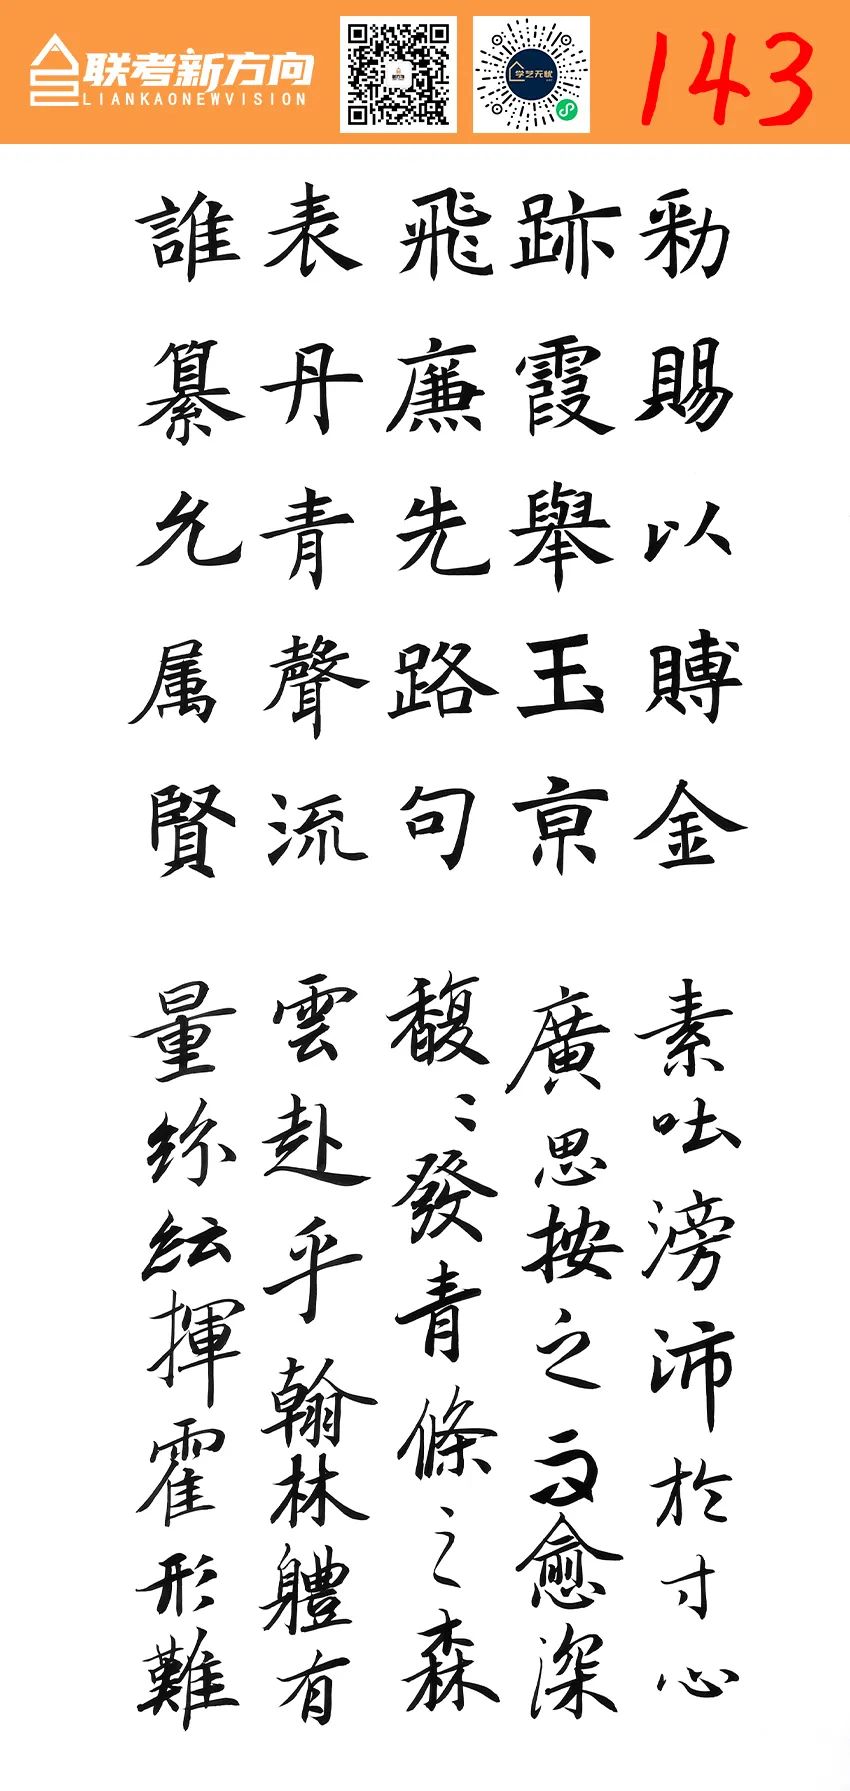 联考新方向
LIANKAONEWVISION
学艺无忧
143
勑賜以賻金
跡霞舉玉京
飛廉先路句
表丹青聲流
誰纂允属賢
素呿滂沛於寸心
廣思按之而愈深
馥〻發青條之森
雲赴乎翰林體有
量紛紜揮霍形難